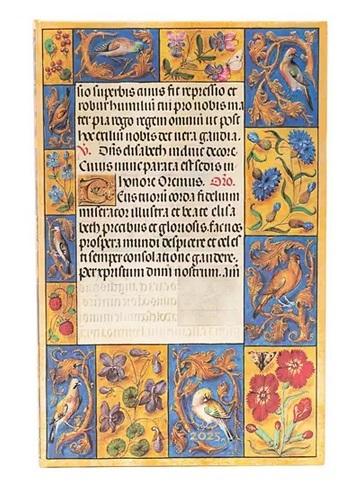 sio superbis cuius fit repressio et
robur humiliũ tu pro nobis ma
ter pia rogo regem omniũ ut post
hoc exiliũ nobis det vera gaudia.
V. Dñs elisabeth induit decore.
Cuius nunc parata est sedis in
honore Oremus. Oro.
corda fidelium
miserator illustra et beate elisa
beth precibus et gloriosis. fac nos
prospera mundi despicere et cel est
ti semper consolatione gaudere.
Per xpristum dnm nostrum. am
2025